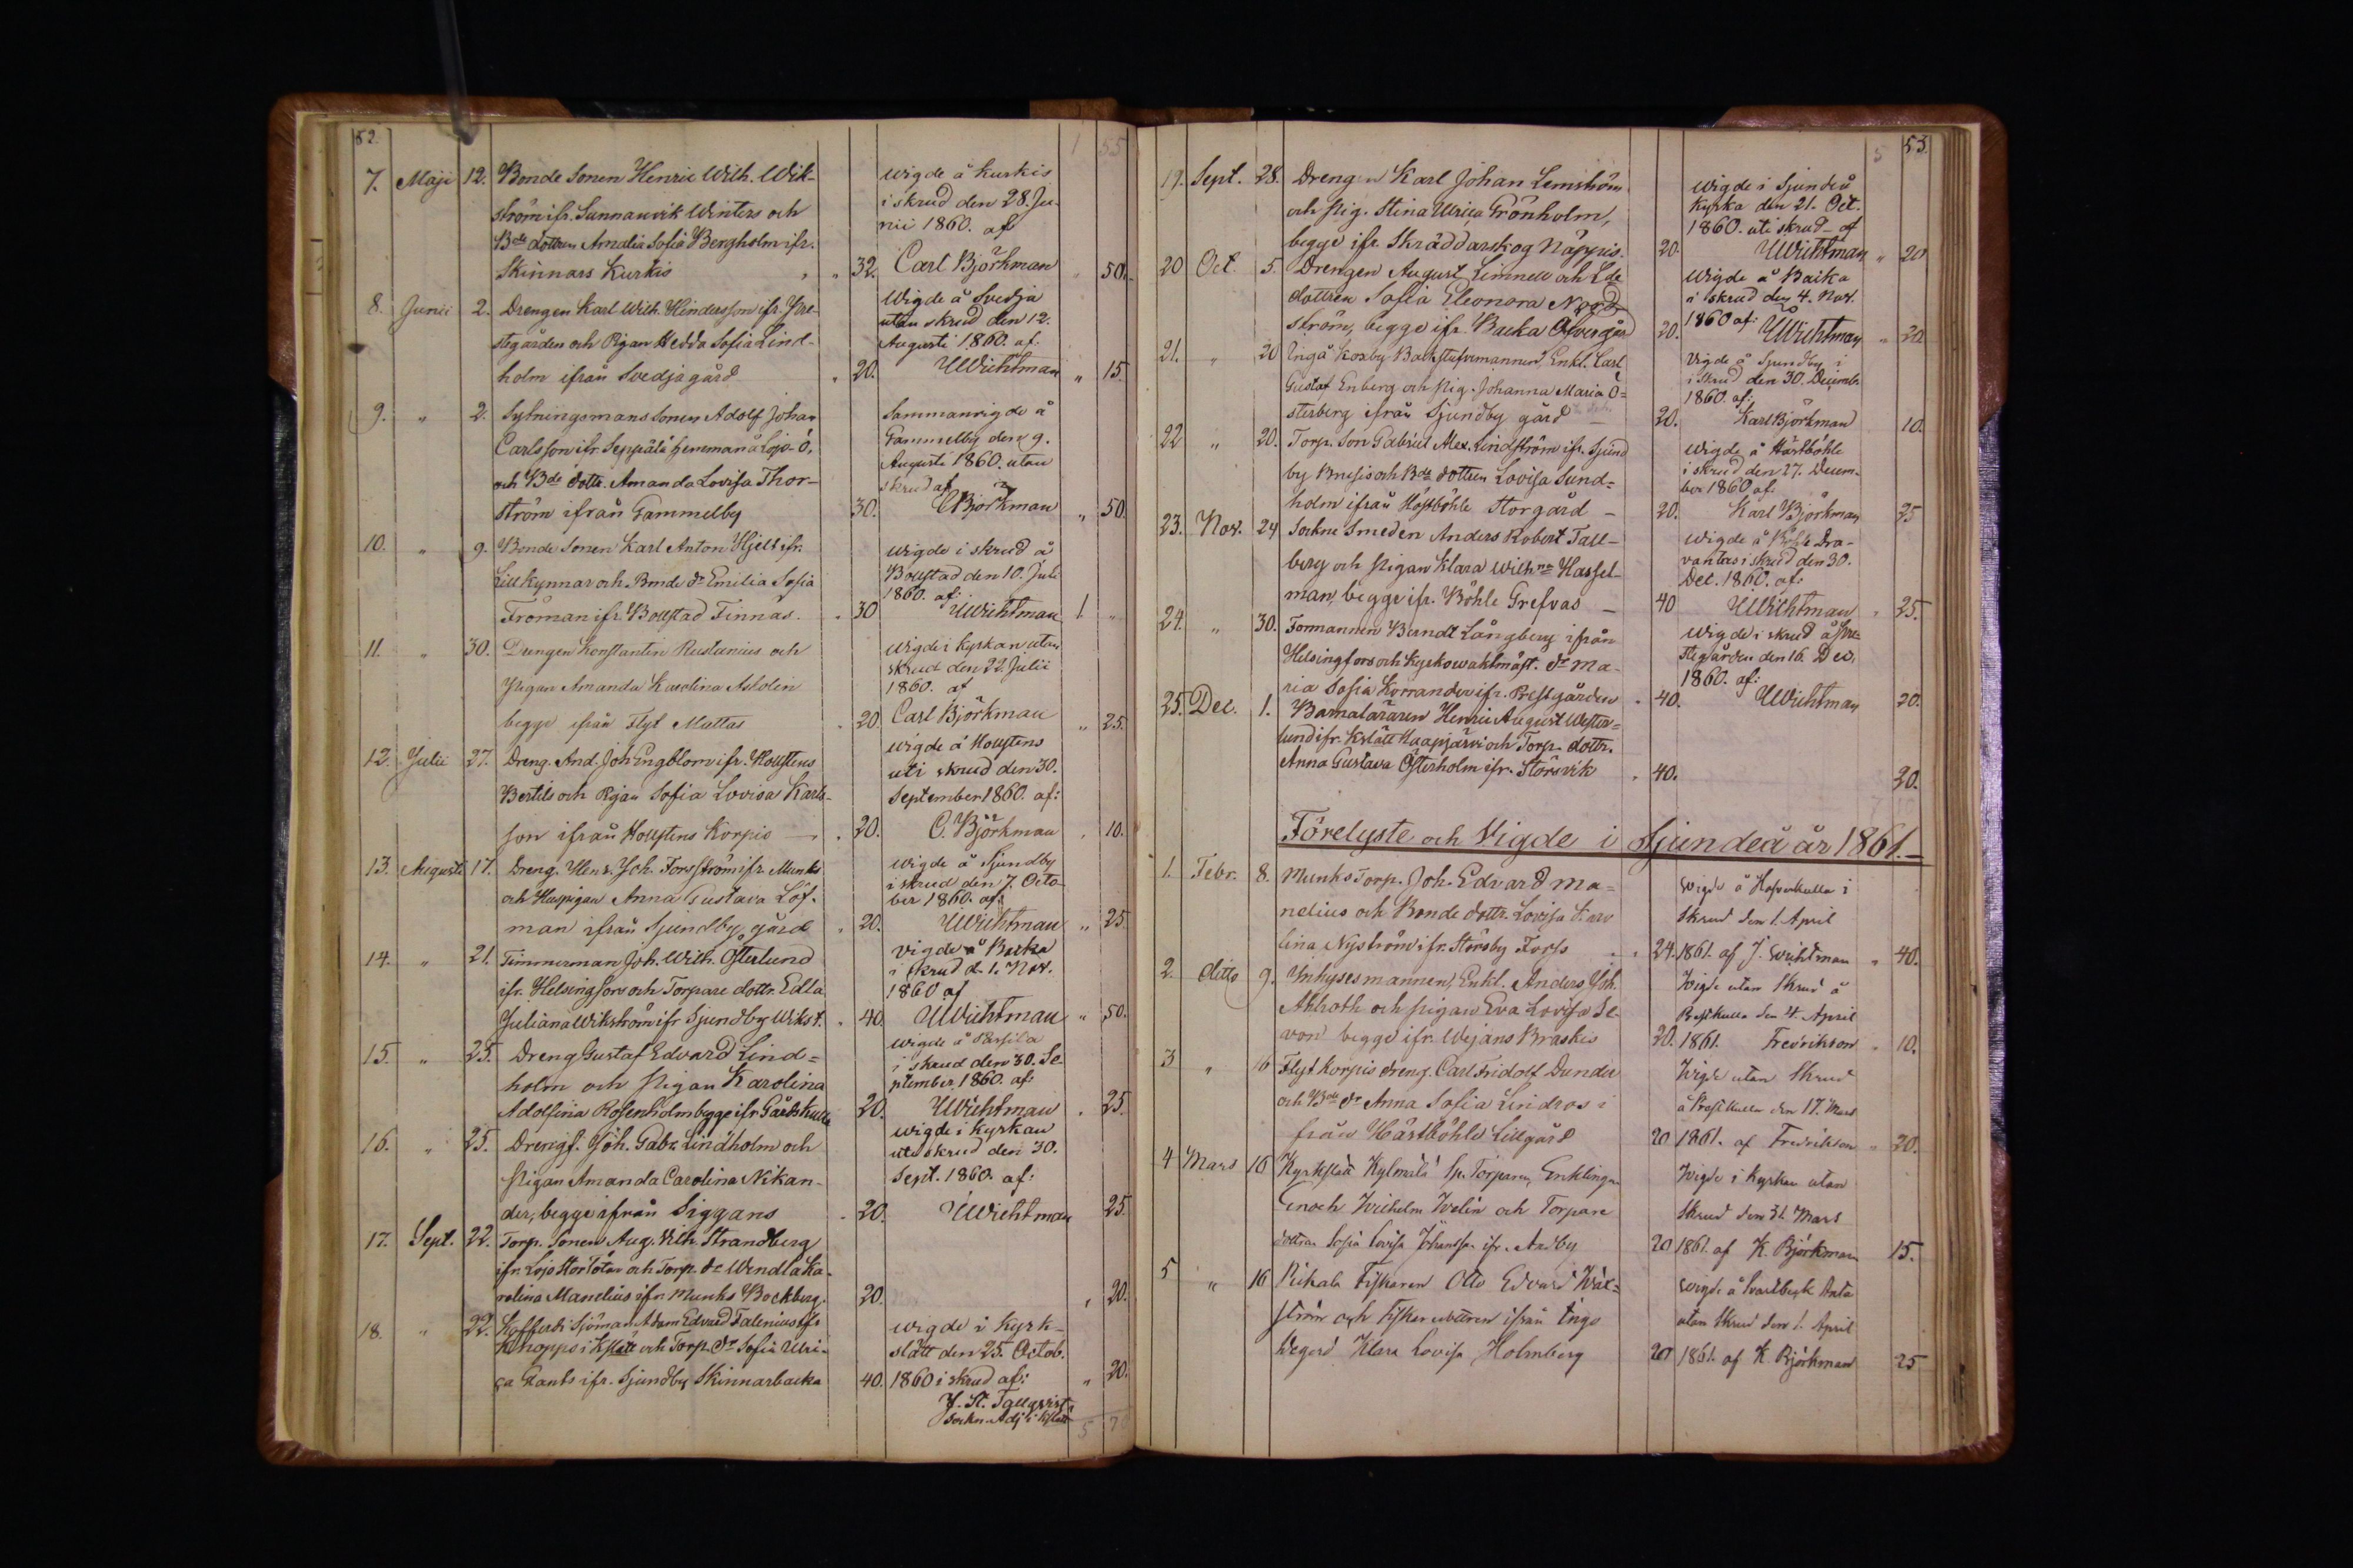 52.
1 55
7. Maji 12. Bonde Sonen Henric Wilh. Wik-
ström ifr. Sunnanvik Winters och
Bde dottren Amalia Sofia Bergholm ifr.
Skinnars Kurkis " " 32.
wigde å Kurkis
i skrud den 28. Ju-
nii 1860. af
Carl Björkman " 50.
8. Junii 2. Drengen Karl Wilh. Hindersson ifr. Pre-
stegården och Pigan Hedda Sofia Lind-
holm ifrån Svedja gård " 20.
Wigde å Svedja
utan skrud den 12.
Augusti 1860. af:
UWichtman " 15.
9. " 2. Sytningsmans Sonen Adolf Johan
Carlsson ifr. Seppälä hemman å Lojo-Ö,
och Bde dottr. Amanda Lovisa Thor-
ström ifrån Gammelby 30.
Sammanvigde å
Gammelby den 9.
Augusti 1860. utan
skrud af
CBjörkman " 50.
10. " 9. Bonde Sonen Karl Anton Hjelt ifr.
Lill Kynnar och Bonde dr Emilia Sofia
Fröman ifr. Bollstad Finnäs. " 30
wigde i skrud å
Bollstad den 10. Juli
1860. af:
UWichtman 1 "
11. " 30. Drengen Konstantin Rustenius och
Pigan Amanda Karolina Astolin
begge ifrån Flyt Mattas " 20
wigde i Kyrkan utan
skrud den 22. Julii
1860. af
Carl Björkman " 25.
12. Julii 27. Dreng. And. Joh Engblom ifr. Kollstens
Bertils och Pigan Sofia Lovisa Karls-
son ifrån Kollstens Korpis — " 20.
wigde å Kollstens
uti skrud den 30.
September 1860. af:
C. Björkman " 10.
13. Augusti 17. Dreng. Henr. Joh. Forsström ifr. Munks
och Huspigan Anna Gustava Löf-
man ifrån Sjundby gård " 20.
wigde å Sjundby
i skrud den 7. Octo-
ber 1860. af:
UWichtman " 25.
14. " 21. Timmerman Joh. Wilh. Österlund
ifr. Helsingfors och Torpare dottr. Edla
Juliana Wikström ifr Sjundby Wikst. " 40.
vigde å Backa
i skrud d. 1. Nov.
1860 af
UWichtman " 50.
15. " 25. Dreng Gustaf Edvard Lind=
holm och Pigan Karolina
Adolfina Rosenholm begge ifr Gårdskulla 20.
wigde å Passila
i skrud den 30. Se-
ptember 1860. af:
UWichtman " 25.
16. " 25. Drengs. Joh. Gabr. Lindholm och
Pigan Amanda Carolina Nikan-
der, begge ifrån Siggans " 20.
wigde i Kyrkan
uti skrud den 30.
Sept. 1860. af:
UWichtman 25.
17. Sept. 22. Torp. Sonen Aug. Wilh. Strandberg
ifr. Lojo Stor Töter och Torp. dr Wendla Ka-
rolina Manelius ifr. Munks Bockberg. 20. " 20.
18. " 22. Kofferdi Sjöman Adam Edvard Falenius ifr
Knopps i Kslätt och Torp. dr Sofia Ulri-
ca Grants ifr. Sjundby Skinnarbacka 40.
wigde i Kyrk-
slätt den 25. Octob.
1860 i skrud af: " 20.
J. St. Tallqvist
Sockn. Adj. i Kslätt
5 70
53.
5
19. Sept. 28. Drengen Karl Johan Lemström
och Pig. Stina Ulrica Grönholm,
begge ifr. Skräddarskog Näppis. 20.
wigde i Sjundeå
Kyrka den 21. Oct.
1860. uti skrud – af
UWichtman " 20
20 Oct. 5. Drengen August Linnell och Lde
dottren Sofia Eleonora Nord-
ström, begge ifr. Backa Öfvergård 20.
wigde å Backa
i skrud den 4. Nov.
1860 af: UWichtman " 20
21. " 20 Ingå Koxby Backstufvumannen, Enkl. Carl
Gustaf Enberg och Pig. Johanna Maria Ö=
sterberg ifrån Sjundby gård — 20.
Vigde å Sjundby i
i skrud den 30. Decemb.
1860. af:
Karl Björkman 10.
22 " 20. Torp. Son Gabriel Alex. Lindström ifr. Sjund
by Brusis och Bde dottren Lovisa Sund=
holm ifrån Hästböhle Storgård — 20.
wigde å Hästböhle
i skrud den 27. Decem-
ber 1860 af:
Karl Björkman 25
23. Nov. 24 Sockne Smeden Anders Robert Tall-
berg och Pigan Klara Wilhna Hassel-
man, begge ifr. Böhle Grefvas — 40
wigde å Böhle Dra-
vantas i skrud den 30.
Dec. 1860. af:
UWichtman " 25.
24. " 30. Formannen Berndt Långberg ifrån
Helsingfors och Kyrkowaktmäst. dr Ma-
ria Sofia Korrander ifr. Prestgården " 40.
wigde i skrud å Pre-
stegården den 16. Dec.
1860. af:
UWichtman 20.
25. Dec. 1. Barnaläraren Henric August Wester=
lund ifr. Kslätt Haapjärvi och Torp. dottr.
Anna Gustava Österholm ifr. Störsvik " 40. 20.
Förelyste och Vigde i Sjundeå år 1861.—
1. Febr. 8. Munks Torp. Joh. Edvard Ma=
nelius och Bonde dottr. Lovisa Karo
lina Nyström ifr. Störsby Torps " " 24.
wigde å Hafverkulla i
skrud den 1. April
1861. af J. Wichtman " 40.
2. ditto 9. Inhysesmannen, Enkl. Anders Joh.
Ahlroth och pigan Eva Lovisa Se-
von begge ifr. Wejans Braskis 20.
Wigde utan Skrud å
Prestkulla den 4. April
1861. Fredrikson " 10.
3 " 16 Flyt Korpis dreng. Carl Fridolf Dunder
och Bde dr Anna Sofia Lindros i
från Hästböhle Lillgård 20
Wigde utan Skrud
å Prestkulla den 17. Mars
1861. af Fredrikson " 20.
4 Mars 16 Kyrkslätt Kylmälä Sp. Torparen, Enklingen
Enoch Wilhelm Welin och Torpare
dottren Sofia Lovisa Johansson ifr. Andby 20
Wigde i Kyrkan utan
Skrud den 31 Mars
1861. af K. Björkman 15.
5 " 16 Pikala Fiskaren Otto Edvard Wäc=
ström och Fiskaredottren ifrån Ingo
Wegerd Klara Lovisa Holmberg 20
wigde å Svartbäck
utan Skrud den 1. April
1861. af K. Björkman 25